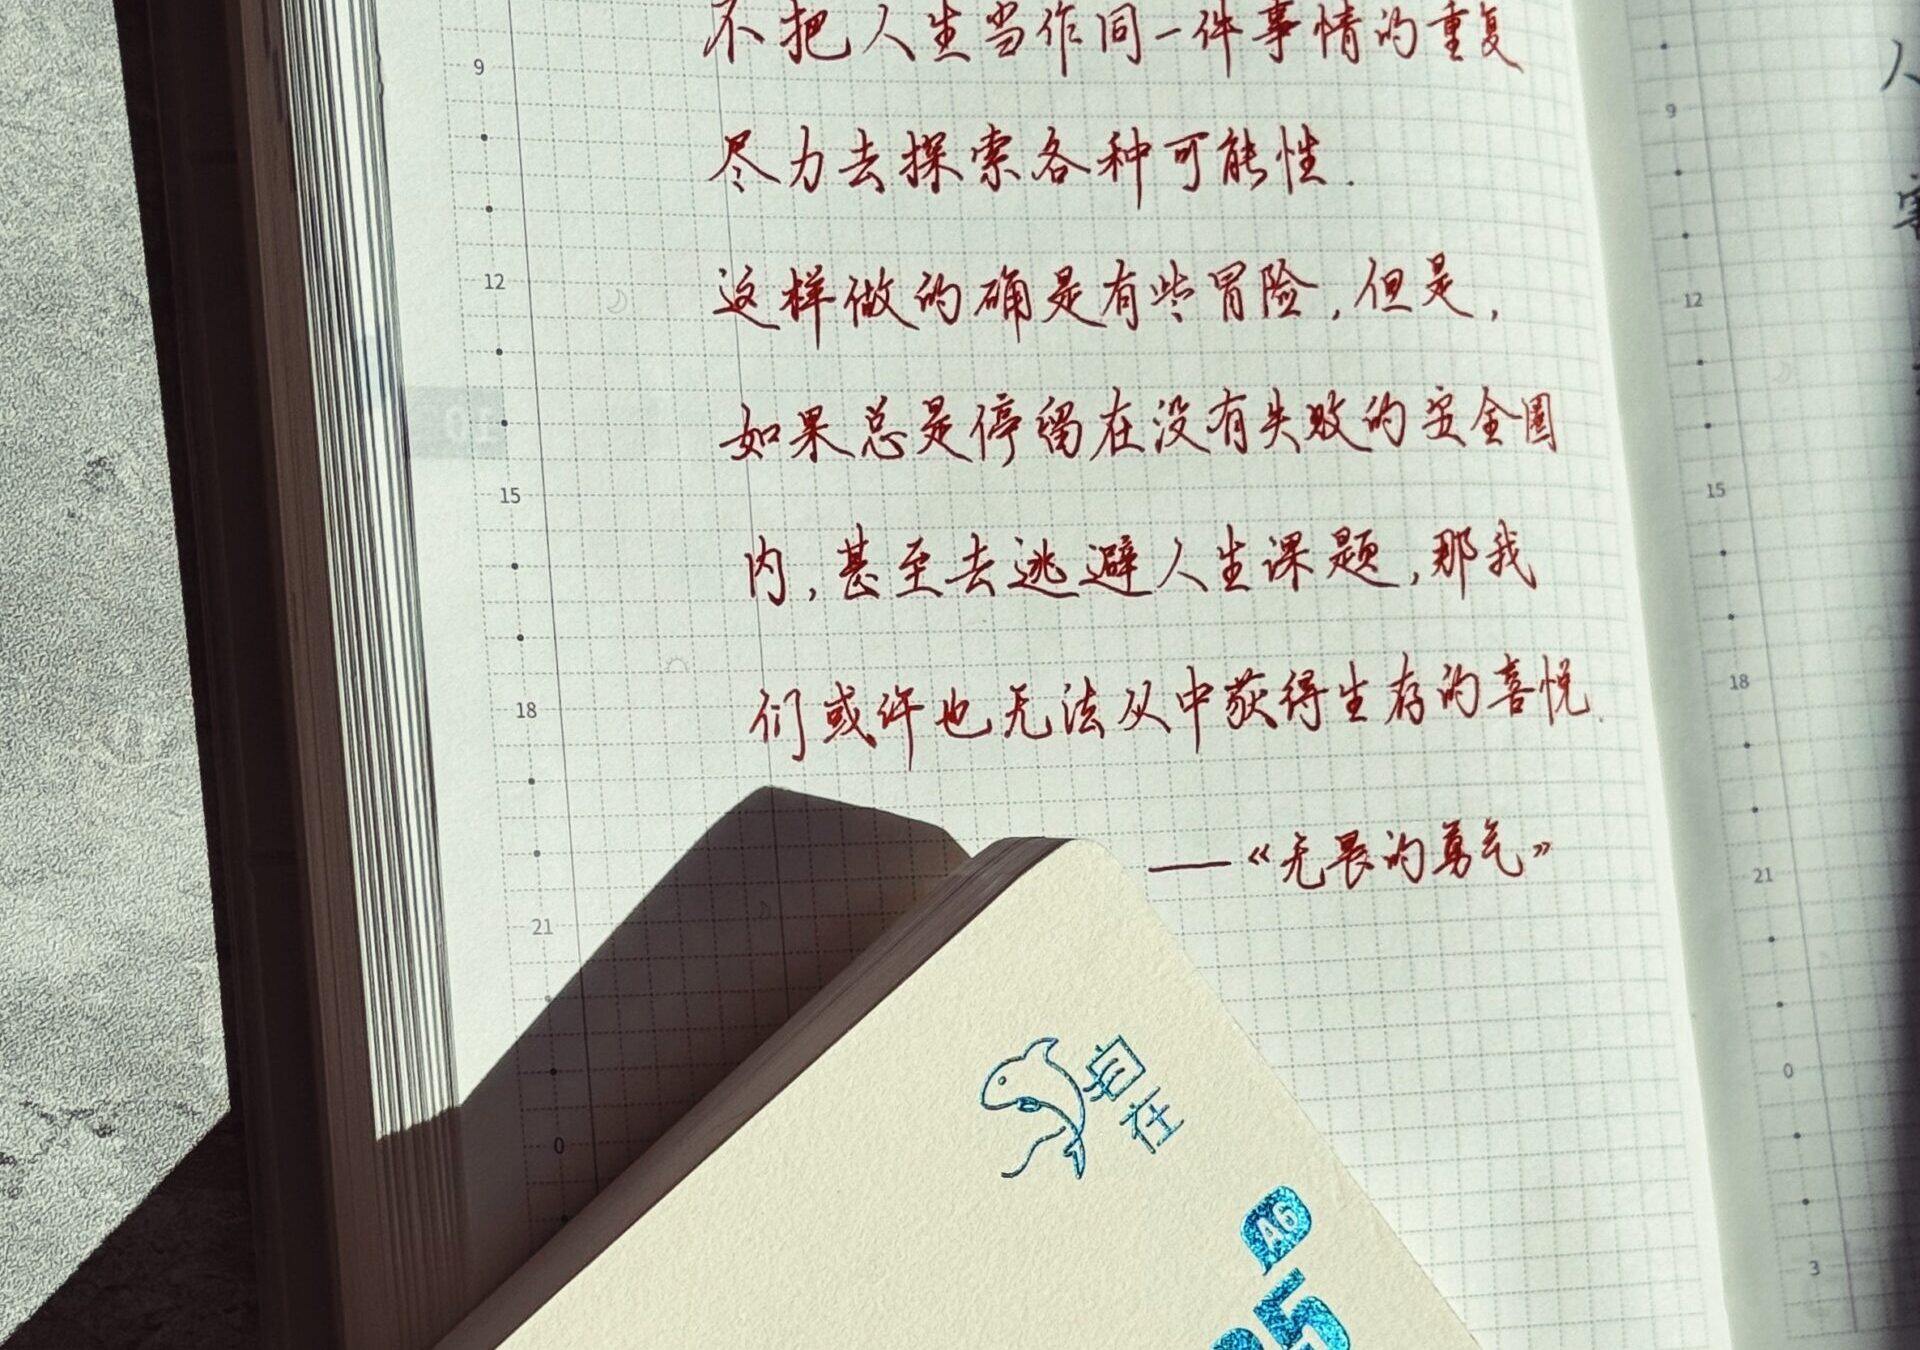 不把人生当作同一件事情的重复
尽力去探索各种可能性.
这样做的确是有些冒险,但是,
如果总是停留在没有失败的安全圈
内,甚至去逃避人生课题,那我
们或许也无法从中获得生存的喜悦.
——《无畏的勇气》
9
12
15
18
21
0
01
9
12
15
18
21
0
3
人
自在
A6